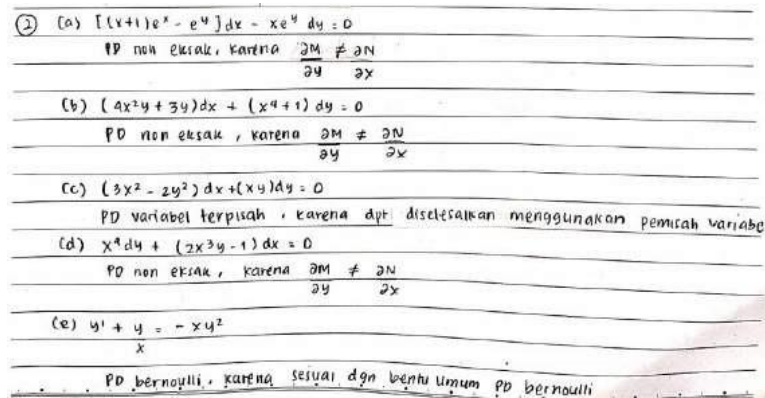 ② (a) [(x+1)e^x - e^y] dx - xe^y dy = 0
PD non eksak, karena ∂M/∂y ≠ ∂N/∂x
(b) (4x²y + 3y)dx + (x⁴ + 1) dy = 0
PD non eksak, karena ∂M/∂y ≠ ∂N/∂x
(c) (3x² - 2y²) dx + (xy)dy = 0
PD variabel terpisah, karena dpt diselesaikan menggunakan pemisah variabe
(d) x⁴ dy + (2x³y - 1) dx = 0
PD non eksak, karena ∂M/∂y ≠ ∂N/∂x
(e) y' + y/x = - xy²
PD bernoulli, karena sesuai dgn bentu umum PD bernoulli